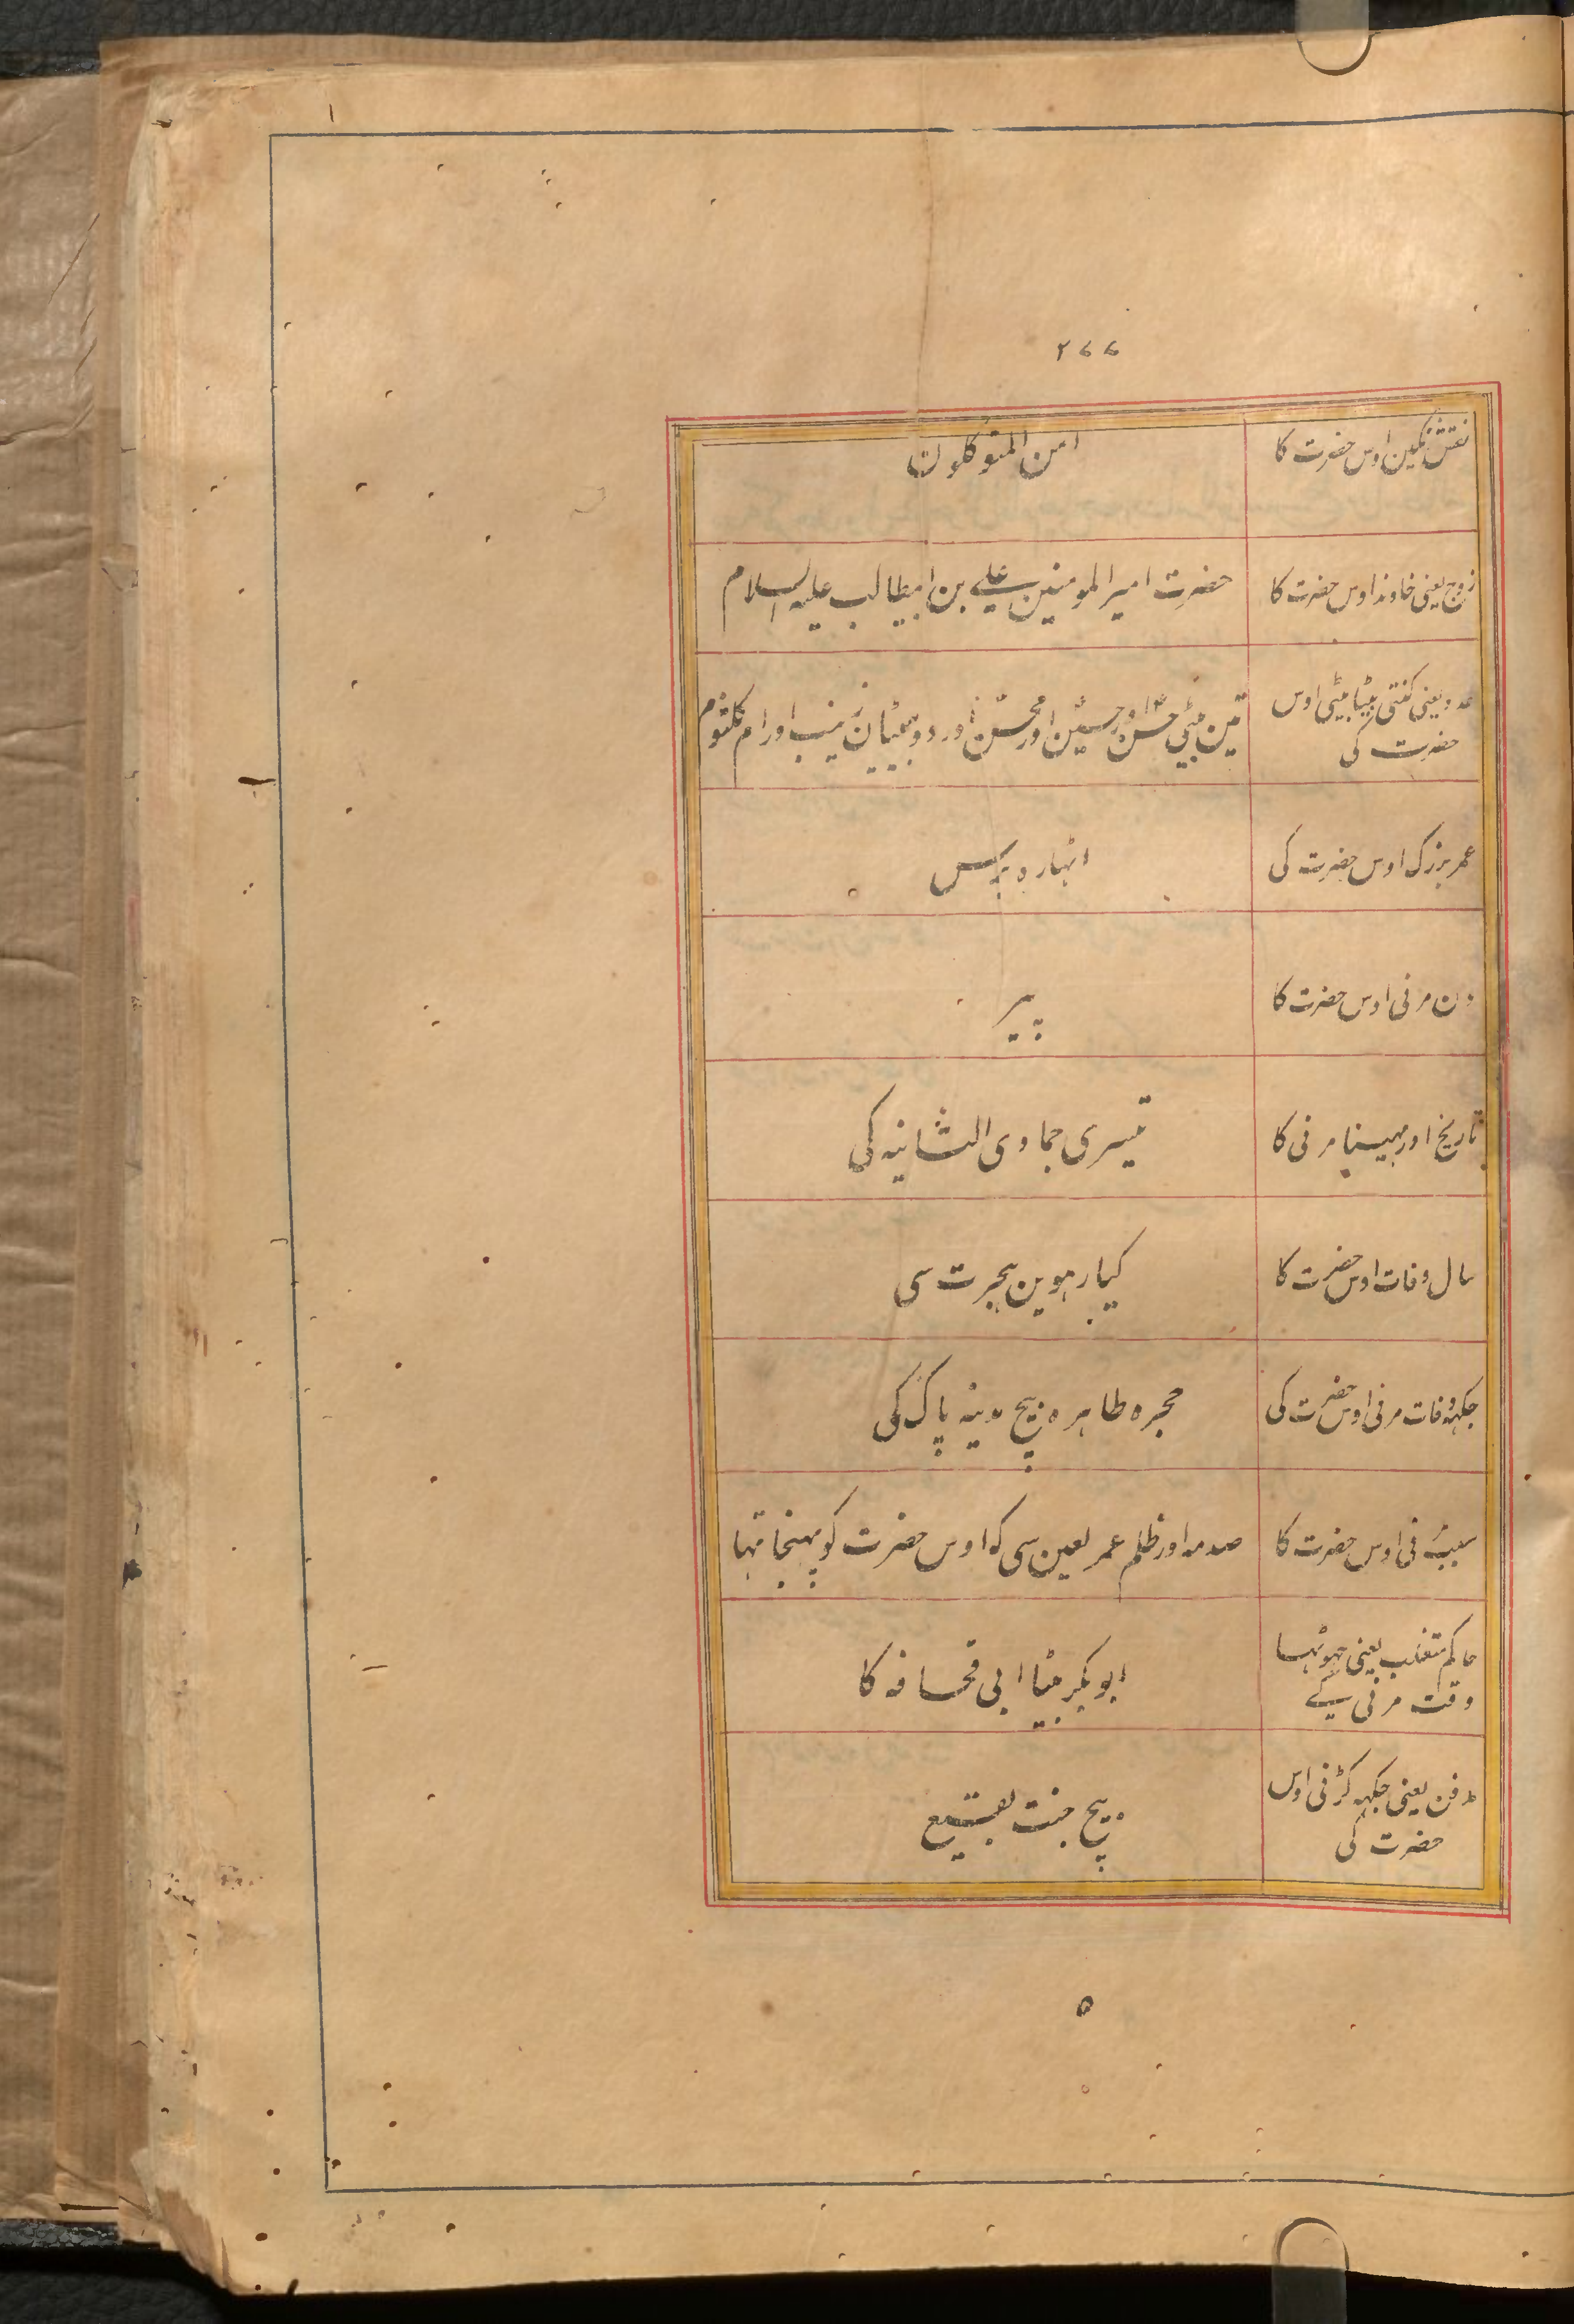 ۲۷۷
نقش نگین اوس حضرت کا
امن المتوکلون
زوج یعنی خاوند اوس حضرت کا
حضرت امیر المومنین علی بن ابیطالب علیہ السلام
عدد یعنی کنتی بیٹا بیٹی اوس
حضرت کی
تین بیٹی حسن اور حسین اور محسن اور دو بیٹیان زینب اور ام کلثوم
عمر بزرک اوس حضرت کی
اٹہارہ برس
دن مرنی اوس حضرت کا
پیر
تاریخ اور مہینا مرنی کا
تیسری جمادی الثانیہ کی
سال وفات اوس حضرت کا
کیارہوین ہجرت سی
جکہہ وفات مرنی اوس حضرت کی
حجرہ طاہرہ بیچ مدینہ پاک کی
سبب مرنی اوس حضرت کا
صدمہ اور ظلم عمر لعین سی کہ اوس حضرت کو پہنچا تہا
حاکم متغلب یعنی جہوٹہا
وقت مرنی کے
ابو بکر بیٹا ابی قحافہ کا
مدفن یعنی جکہہ کڑنی اوس
حضرت کی
بیچ جنت بقیع